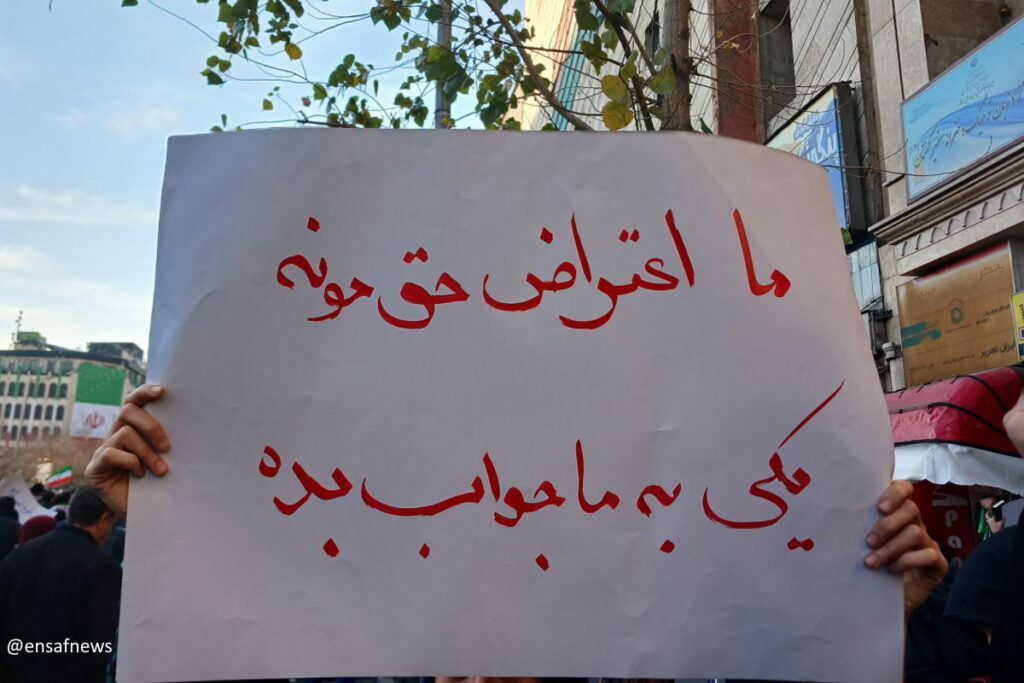 ما اعتراض حق مونه
یکی به ما جواب بده
ایران تحریر
@ensafnews